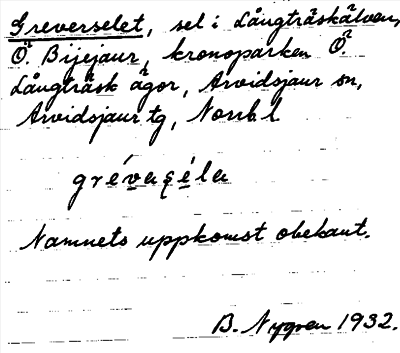 Greverselet, sel i Långträskälven,
Ö. Bijejaur, kronoparken Ö.
Långträsk ägor, Arvidsjaur sn,
Arvidsjaur tg, Norrb. l
grévaşéla
Namnets uppkomst obekant.
B. Nygren 1932.